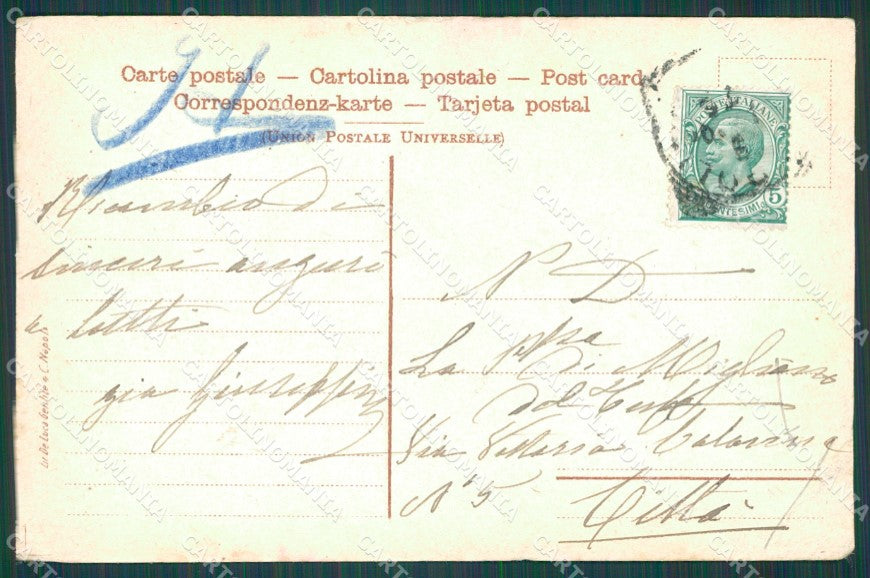 Carte postale — Cartolina postale — Post card
Correspondenz-karte — Tarjeta postal
(Union Postale Universelle)
POSTE ITALIANE
CENTESIMI 5
Ricambio di
sinceri auguri
a tutti
zia Giuseppina
N D
La
di Migliano
del
Via Vittoria Colonna
N° 5
Città
De Luca Gentile & C. Napoli
CARTOLINOMANIA